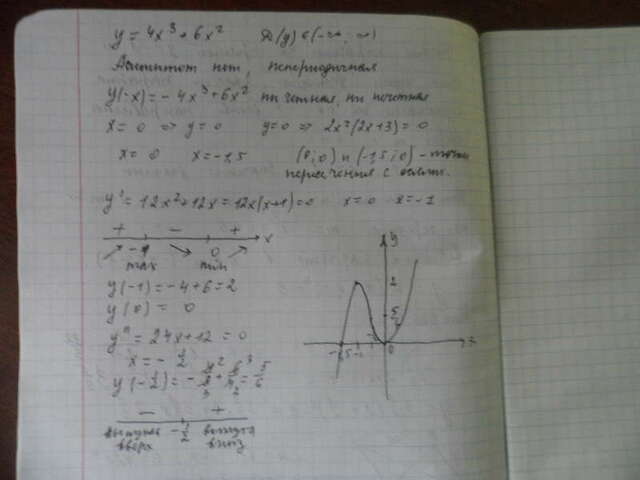 y = 4x³ + 6x² D(y) ∈ (-∞; ∞)
Асимптот нет, непериодичная
y(-x) = -4x³ + 6x² ни четная, ни нечетная
x = 0 ⇒ y = 0 y = 0 ⇒ 2x²(2x+3) = 0
x = 0 x = -1,5 (0;0) и (-1,5;0) - точки
пересечения с осями.
y' = 12x² + 12x = 12x(x+1) = 0 x = 0 x = -1
+ - +
-1 0 x
max min
y(-1) = -4 + 6 = 2
y(0) = 0
y'' = 24x + 12 = 0
x = -1/2
y(-1/2) = 5/6
- +
выпукла -1/2 вогнута
вверх вниз
y
2
-1,5 -1 0 x